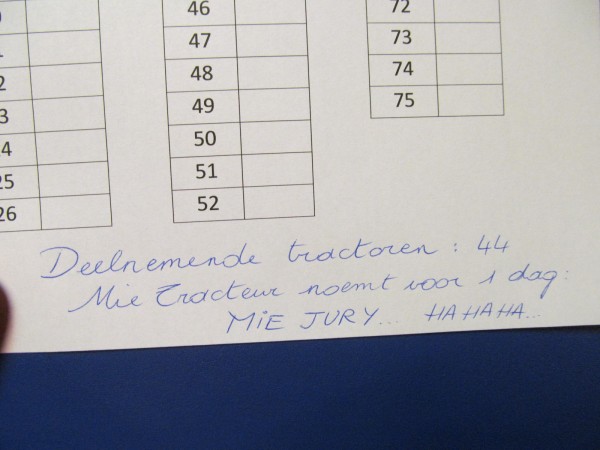 46
47
48
49
50
51
52
72
73
74
75
25
26
Deelnemende tractoren : 44
Mie Tracteur noemt voor 1 dag:
MIE JURY... HA HA HA...